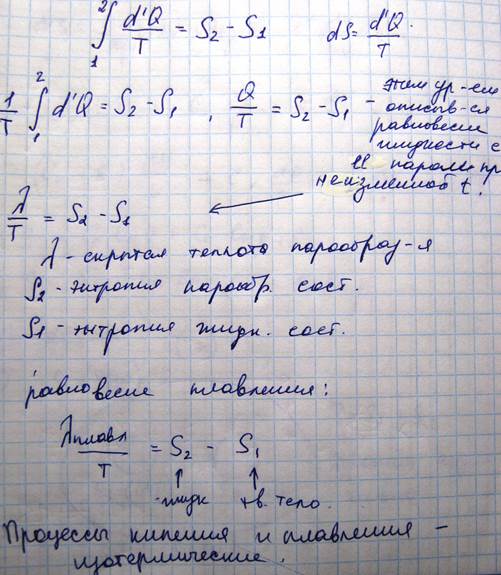 ∫₁² d'Q/T = S₂ - S₁    dS = d'Q/T.
1/T ∫₁² d'Q = S₂ - S₁ , Q/T = S₂ - S₁ - этим ур-ем
описыв-ся
равновесие
жидкости с
её парами при
неизменной t.
λ/T = S₂ - S₁
λ - скрытая теплота парообраз-я
S₂ - энтропия парообр. сост.
S₁ - энтропия жидк. сост.
равновесие плавления:
λплавл/T = S₂ - S₁
жидк  тв. тело.
Процессы кипения и плавления -
изотермические.